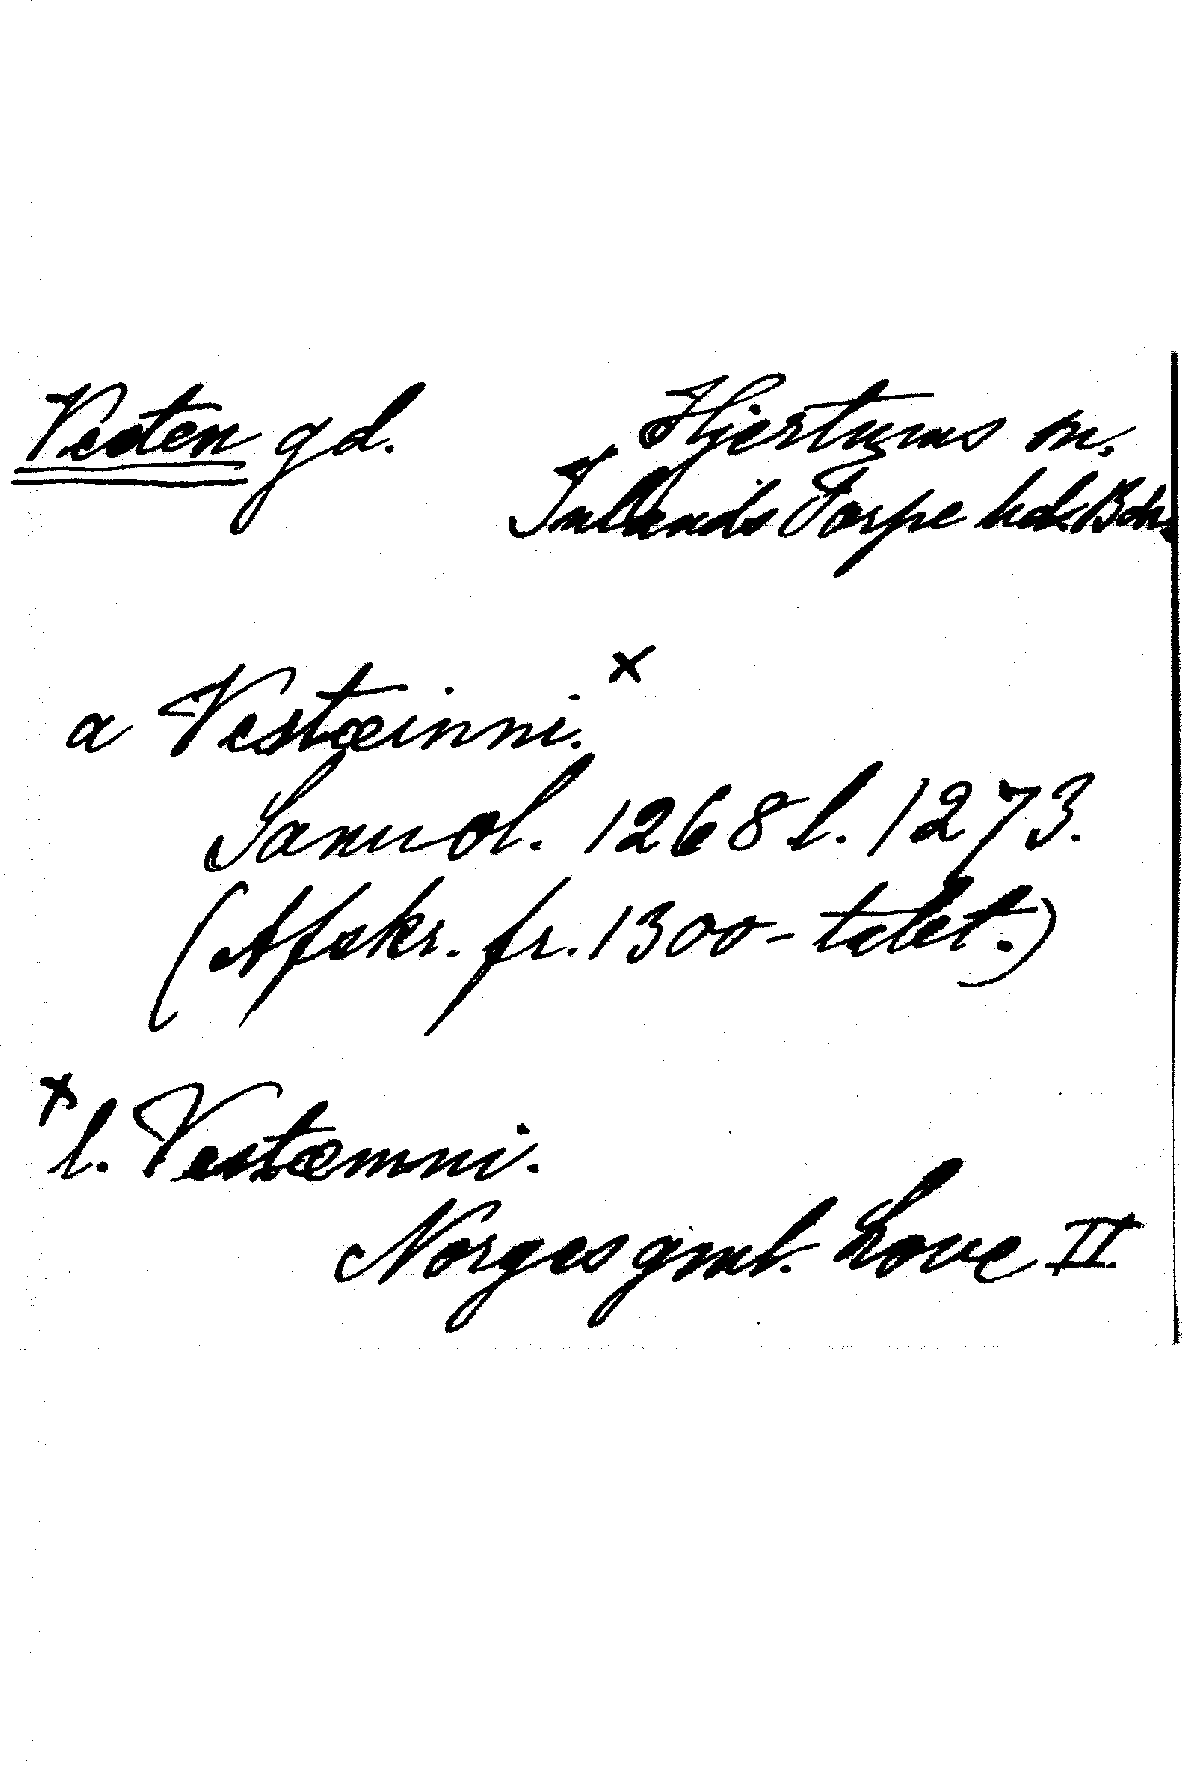 Vesten gd.
Hjertums sn.
Inlands Torpe hd. Boh.
a Vestæinni. x
Januol. 1268 l. 1273.
(Afskr. fr. 1300-talet.)
x l. Vestæmni.
Norges gml. Love II.